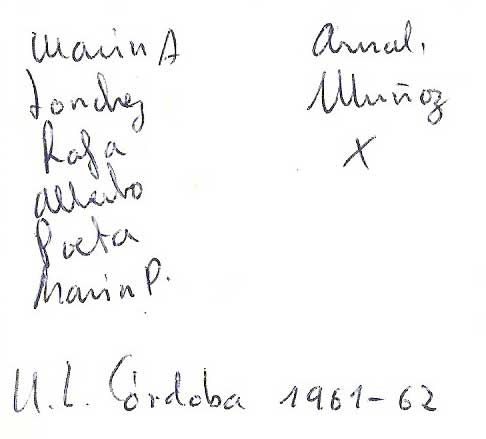 Marin A
Londrez
Rafa
Alberto
Poeta
Marin P.
Arnal.
Muñoz
X
U.L. Córdoba 1961-62